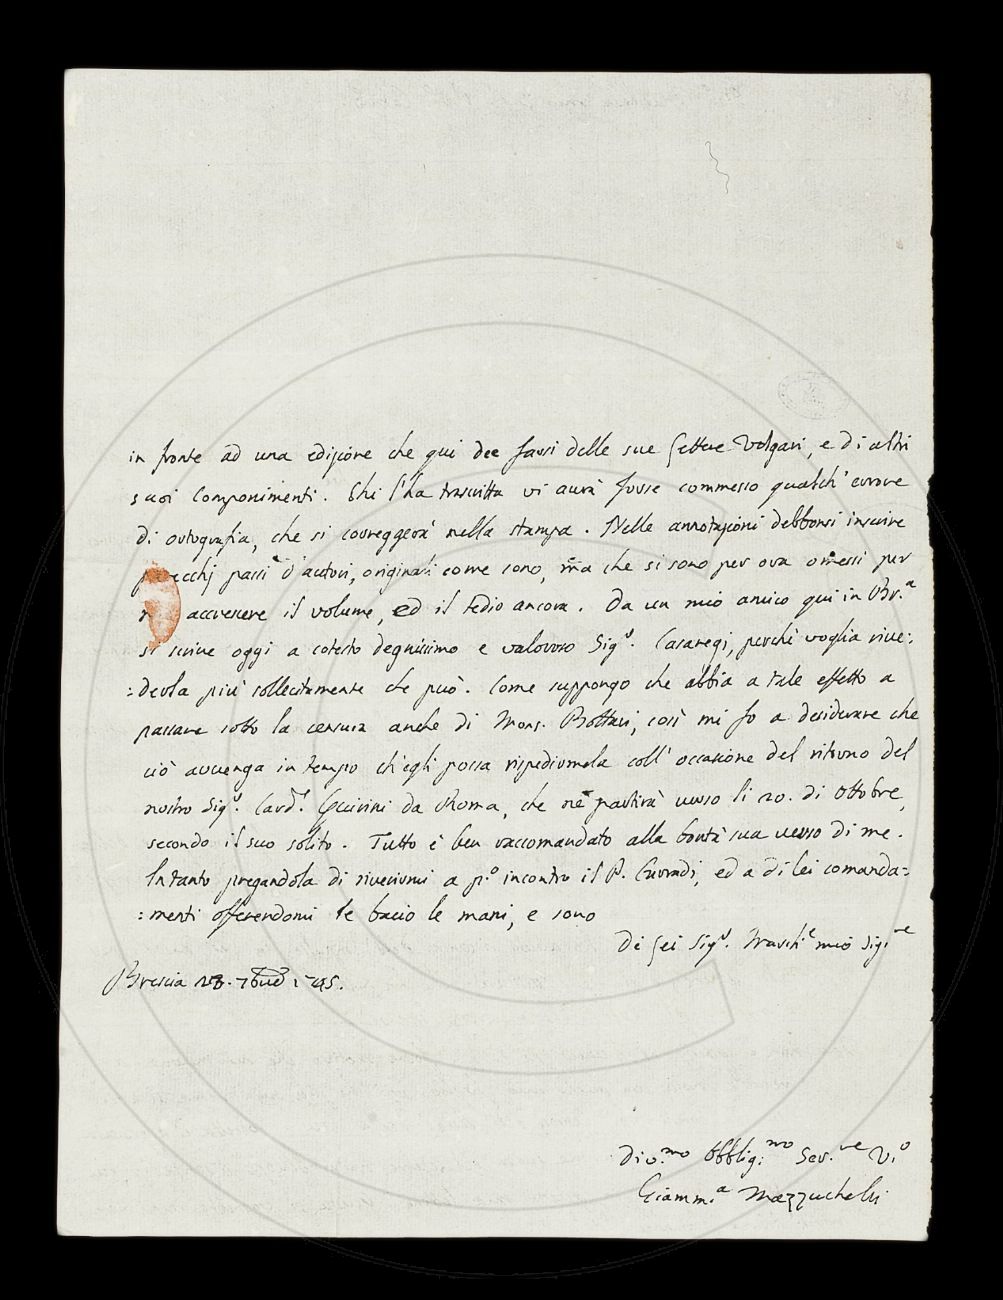 in fronte ad una edizione che qui dee farsi delle sue Lettere Volgari, e di altri
suoi Componimenti. Chi l'ha trascritta vi avrà forse commesso qualch' errore
di ortografia, che si correggerà nella stampa. Nelle annotazioni debbonsi inserire
parecchj passi d'autori, originali come sono, ma che si sono per ora omessi per
accrescere il volume, ed il tedio ancora. Da un mio amico qui in Br.ª
si scrive oggi a cotesto degnissimo e valoroso Sig.r Casaregi, perchè voglia rive:
:derla più sollecitamente che può. Come suppongo che abbia a tale effetto a
passare sotto la censura anche di Mons. Bottari, così mi fo a desiderare che
ciò avvenga in tempo ch'egli possa rispedirmela coll' occasione del ritorno del
nostro Sig.r Card.l Quirini da Roma, che ne partirà verso li 20. di Ottobre,
secondo il suo solito. Tutto è ben raccomandato alla bontà sua verso di me.
Intanto pregandola di riverirmi a p.º incontro il P. Corradi, ed a di lei comanda=
:menti offerendomi le bacio le mani, e sono
Di Lei Sig.r March.e mio Sig.re
Brescia 28. 7bre 1745.
Div.mo Obblig.mo Ser.re V.o
Giamm.a Mazzuchelli